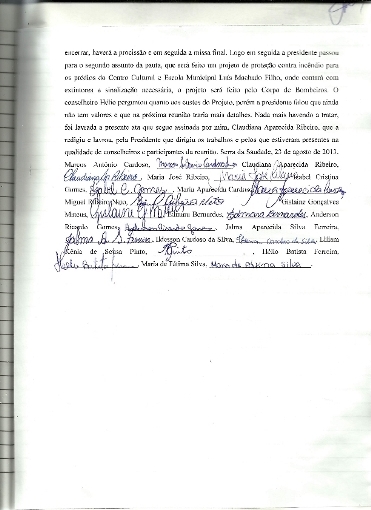 encerrar, haverá a procissão e em seguida a missa final. Logo em seguida a presidente passou
para o segundo assunto da pauta, que será feito um projeto de proteção contra incêndio para
os prédios do Centro Cultural e Escola Municipal Luís Machado Filho, onde contará com
extintores e sinalização necessária, o projeto será feito pelo Corpo de Bombeiros. O
conselheiro Hélio perguntou quanto aos custos do Projeto, porém a presidente falou que ainda
não tem valores e que na próxima reunião traria mais detalhes. Nada mais havendo a tratar,
foi lavrada a presente ata que segue assinada por mim, Claudiana Aparecida Ribeiro, que a
redigiu e lavrou, pela Presidente que dirigiu os trabalhos e pelos que estiveram presentes na
qualidade de conselheiros e participantes da reunião. Serra da Saudade, 23 de agosto de
Marcos Antônio Cardoso, Marcos Antônio Cardoso Claudiana Aparecida Ribeiro,
Claudiana Ap. Ribeiro, Maria José Ribeiro, Maria José Ribeiro Isabel Cristina
Gomes, Isabel C. Gomes, Maria Aparecida Cardoso, Maria Aparecida Cardoso
Miguel Ribeiro Neto, Ribeiro Neto Gislaine Gonçalves
Mateus, Bernardes, Anderson
Ricardo Gomes, Anderson Ricardo Gomes, Jalma Aparecida Silva Ferreira,
Jalma A. S. Ferreira, Cardoso da Silva, Cardoso da Silva Lilliam
Kênia de Sousa Pinto, Pinto, Hélio Batista Ferreira,
Hélio Batista Ferreira, Maria de Fátima Silva, Maria de Fátima Silva